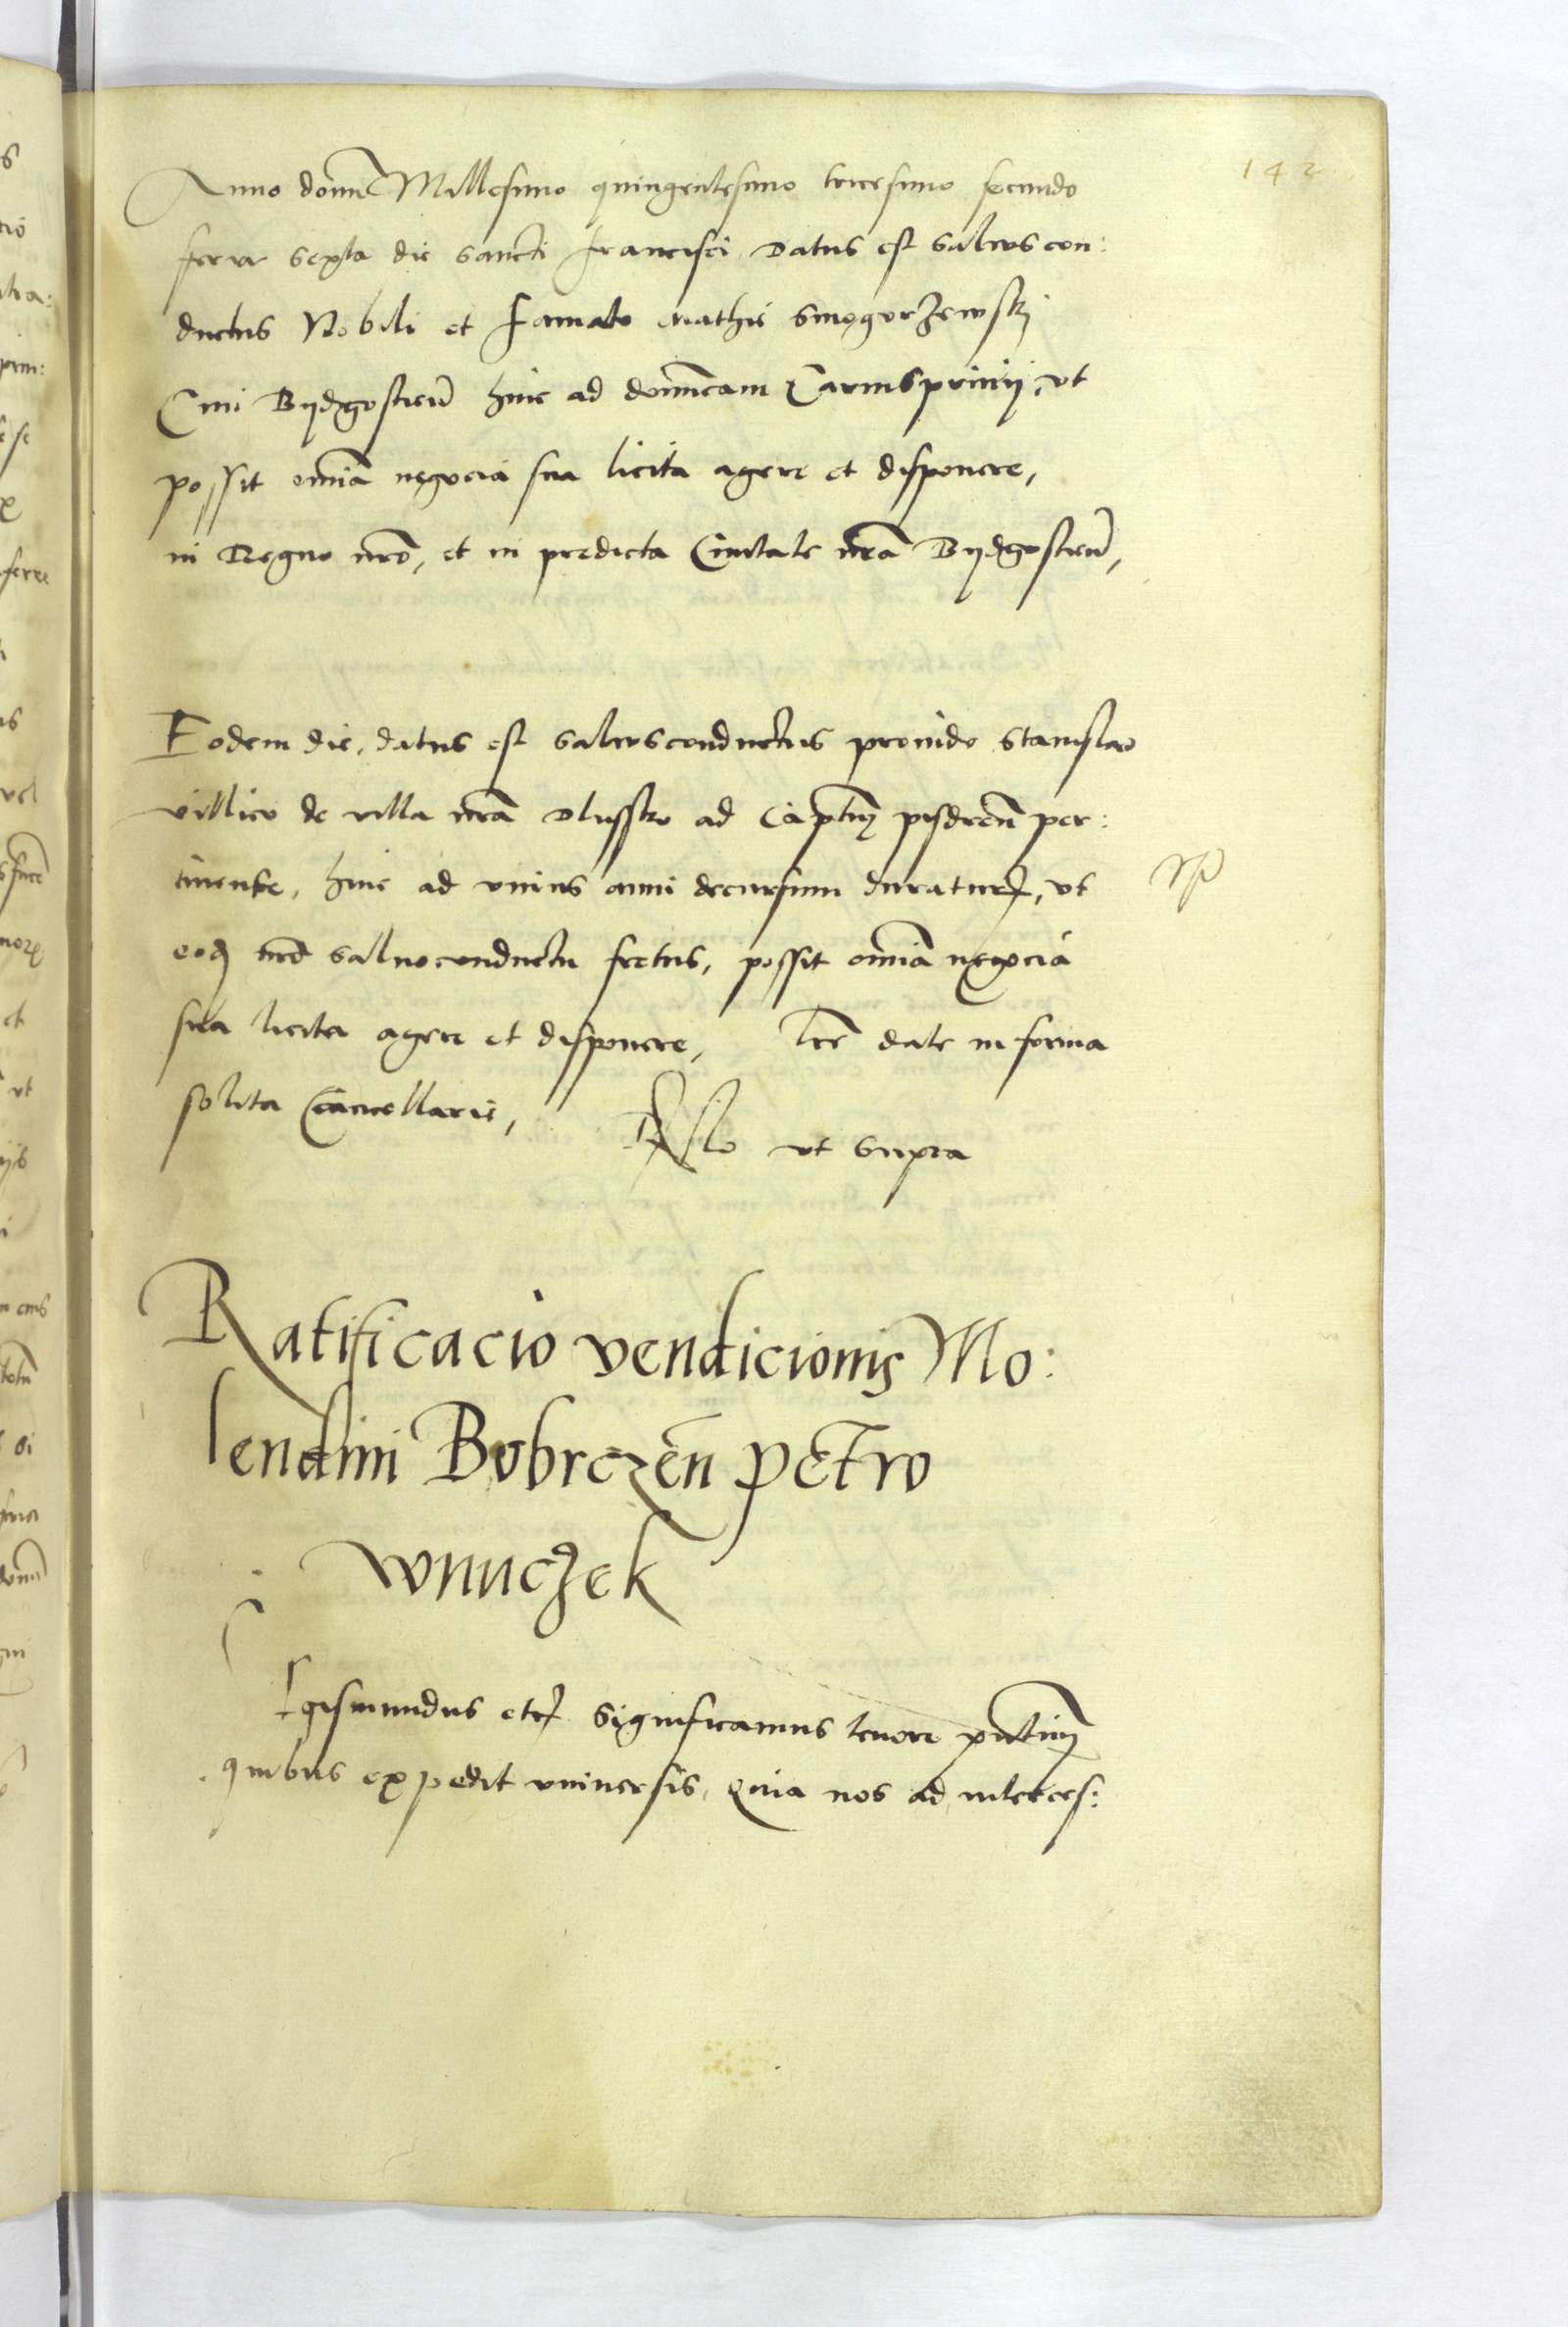 142
Anno domini Millesimo quingentesimo tricesimo secundo
feria sexta die sancti francisci Datus est saluus con:
ductus Nobili et famato mathie Smogorzewskj
Ciui Bydgosticen hinc ad dominicam Carnispriuij, vt
possit omnia negocia sua licita agere et disponere,
in Regno nro, et in predicta Ciuitate nra Bydgosticen,
Eodem die, datus est saluusconductus prouido Stanislao
villico de villa nra Dlussko ad Captum pisdren per:
tinente, hinc ad vnius anni decursum duratur, vt
eodem nro saluoconductu fretus, possit omnia negocia
sua licita agere et disponere, lre date in forma
solita Cancellarie,
ut supra
Ratificacio vendicionis Mo:
lendini Bobrczen Petro
wnuczek
Sigismundus etc Significamus tenore pntium
quibus expedit vniuersis, Quia nos ad interces: